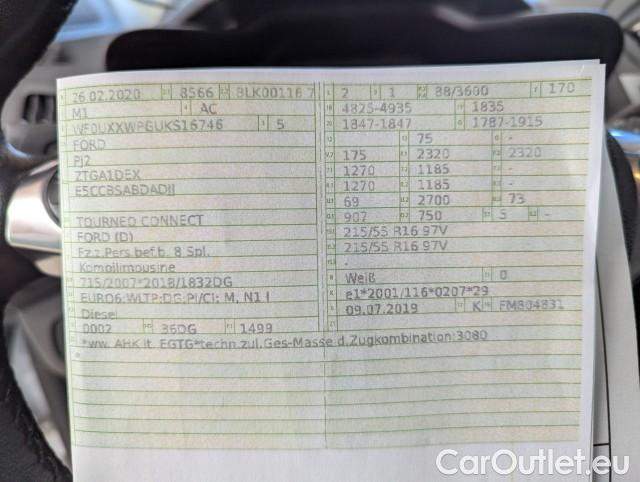 26.02.2020 8566 BLK00116 7
M1 AC
WF0UXXWPGUKS16746 5
FORD
PJ2
ZTGA1DEX
E5CCBSABDADII
TOURNEO CONNECT
FORD (D)
Fz.z.Pers.bef.b. 8 Spl.
Kombilimousine
715/2007*2018/1832DG
EURO6;WLTP;DG;PI/CI; M, N1 I
Diesel
0002 36DG 1499
*ww. AHK lt. EGTG*techn.zul.Ges-Masse d.Zugkombination:3080
2 1 88/3600 170
4825-4935 1835
1847-1847 1787-1915
75 -
175 2320 2320
1270 1185 -
1270 1185 -
69 2700 73
907 750 5 -
215/55 R16 97V
215/55 R16 97V
-
Weiß 0
e1*2001/116*0207*29
09.07.2019 K FM804831
CarOutlet.eu